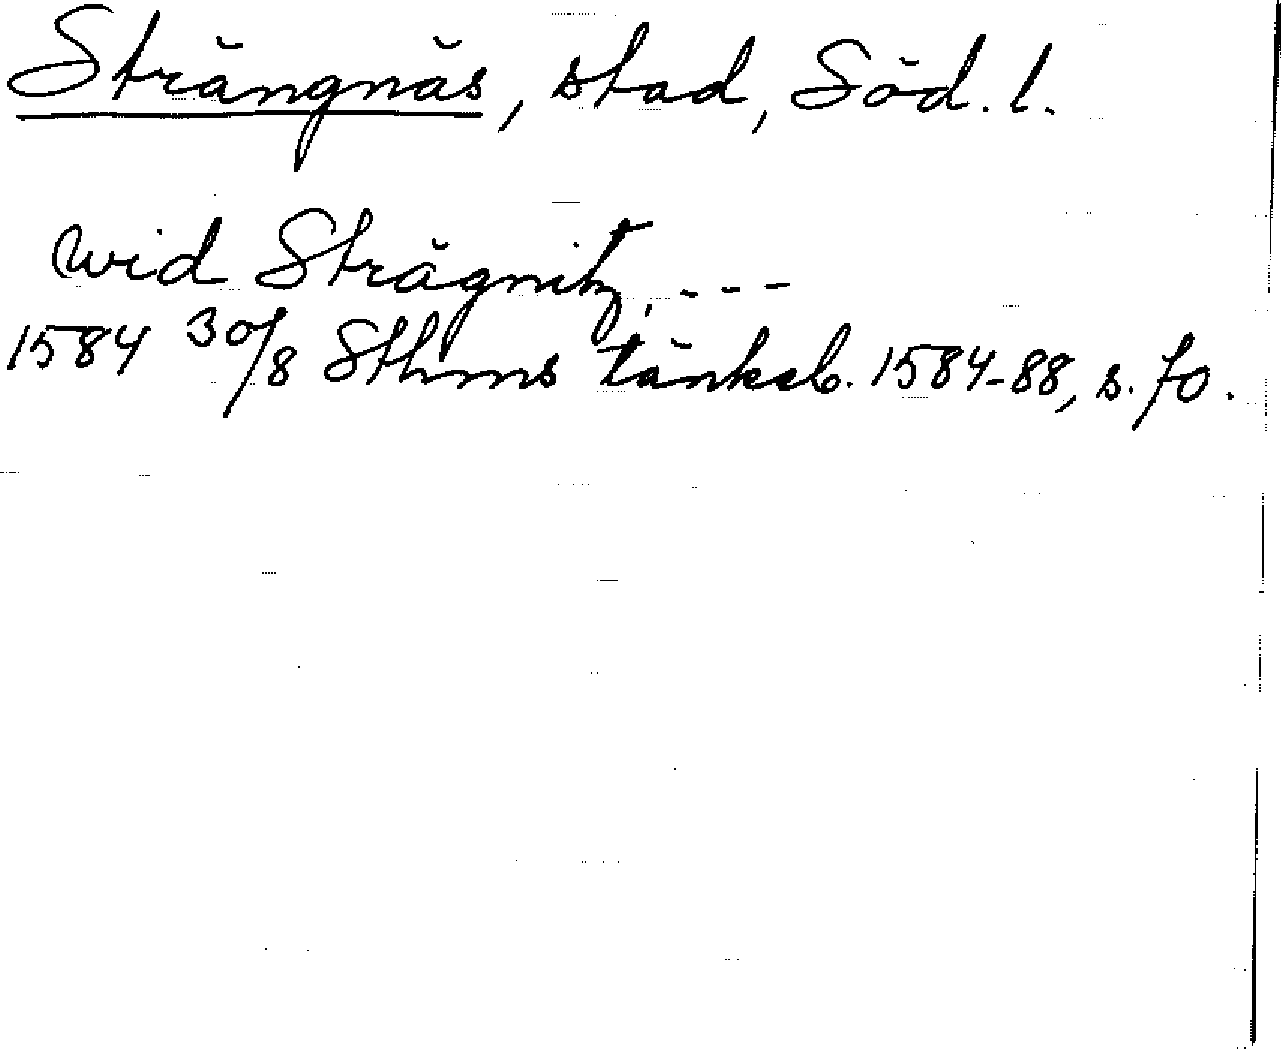 Strängnäs, stad, Söd. l.
wid Strägnitz, ---
1584 30/8 Sthms tänkeb. 1584-88, s. 70.